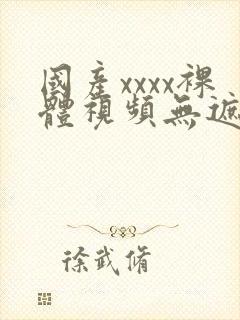 國產xxxx裸
體視頻無遮
徐武脩